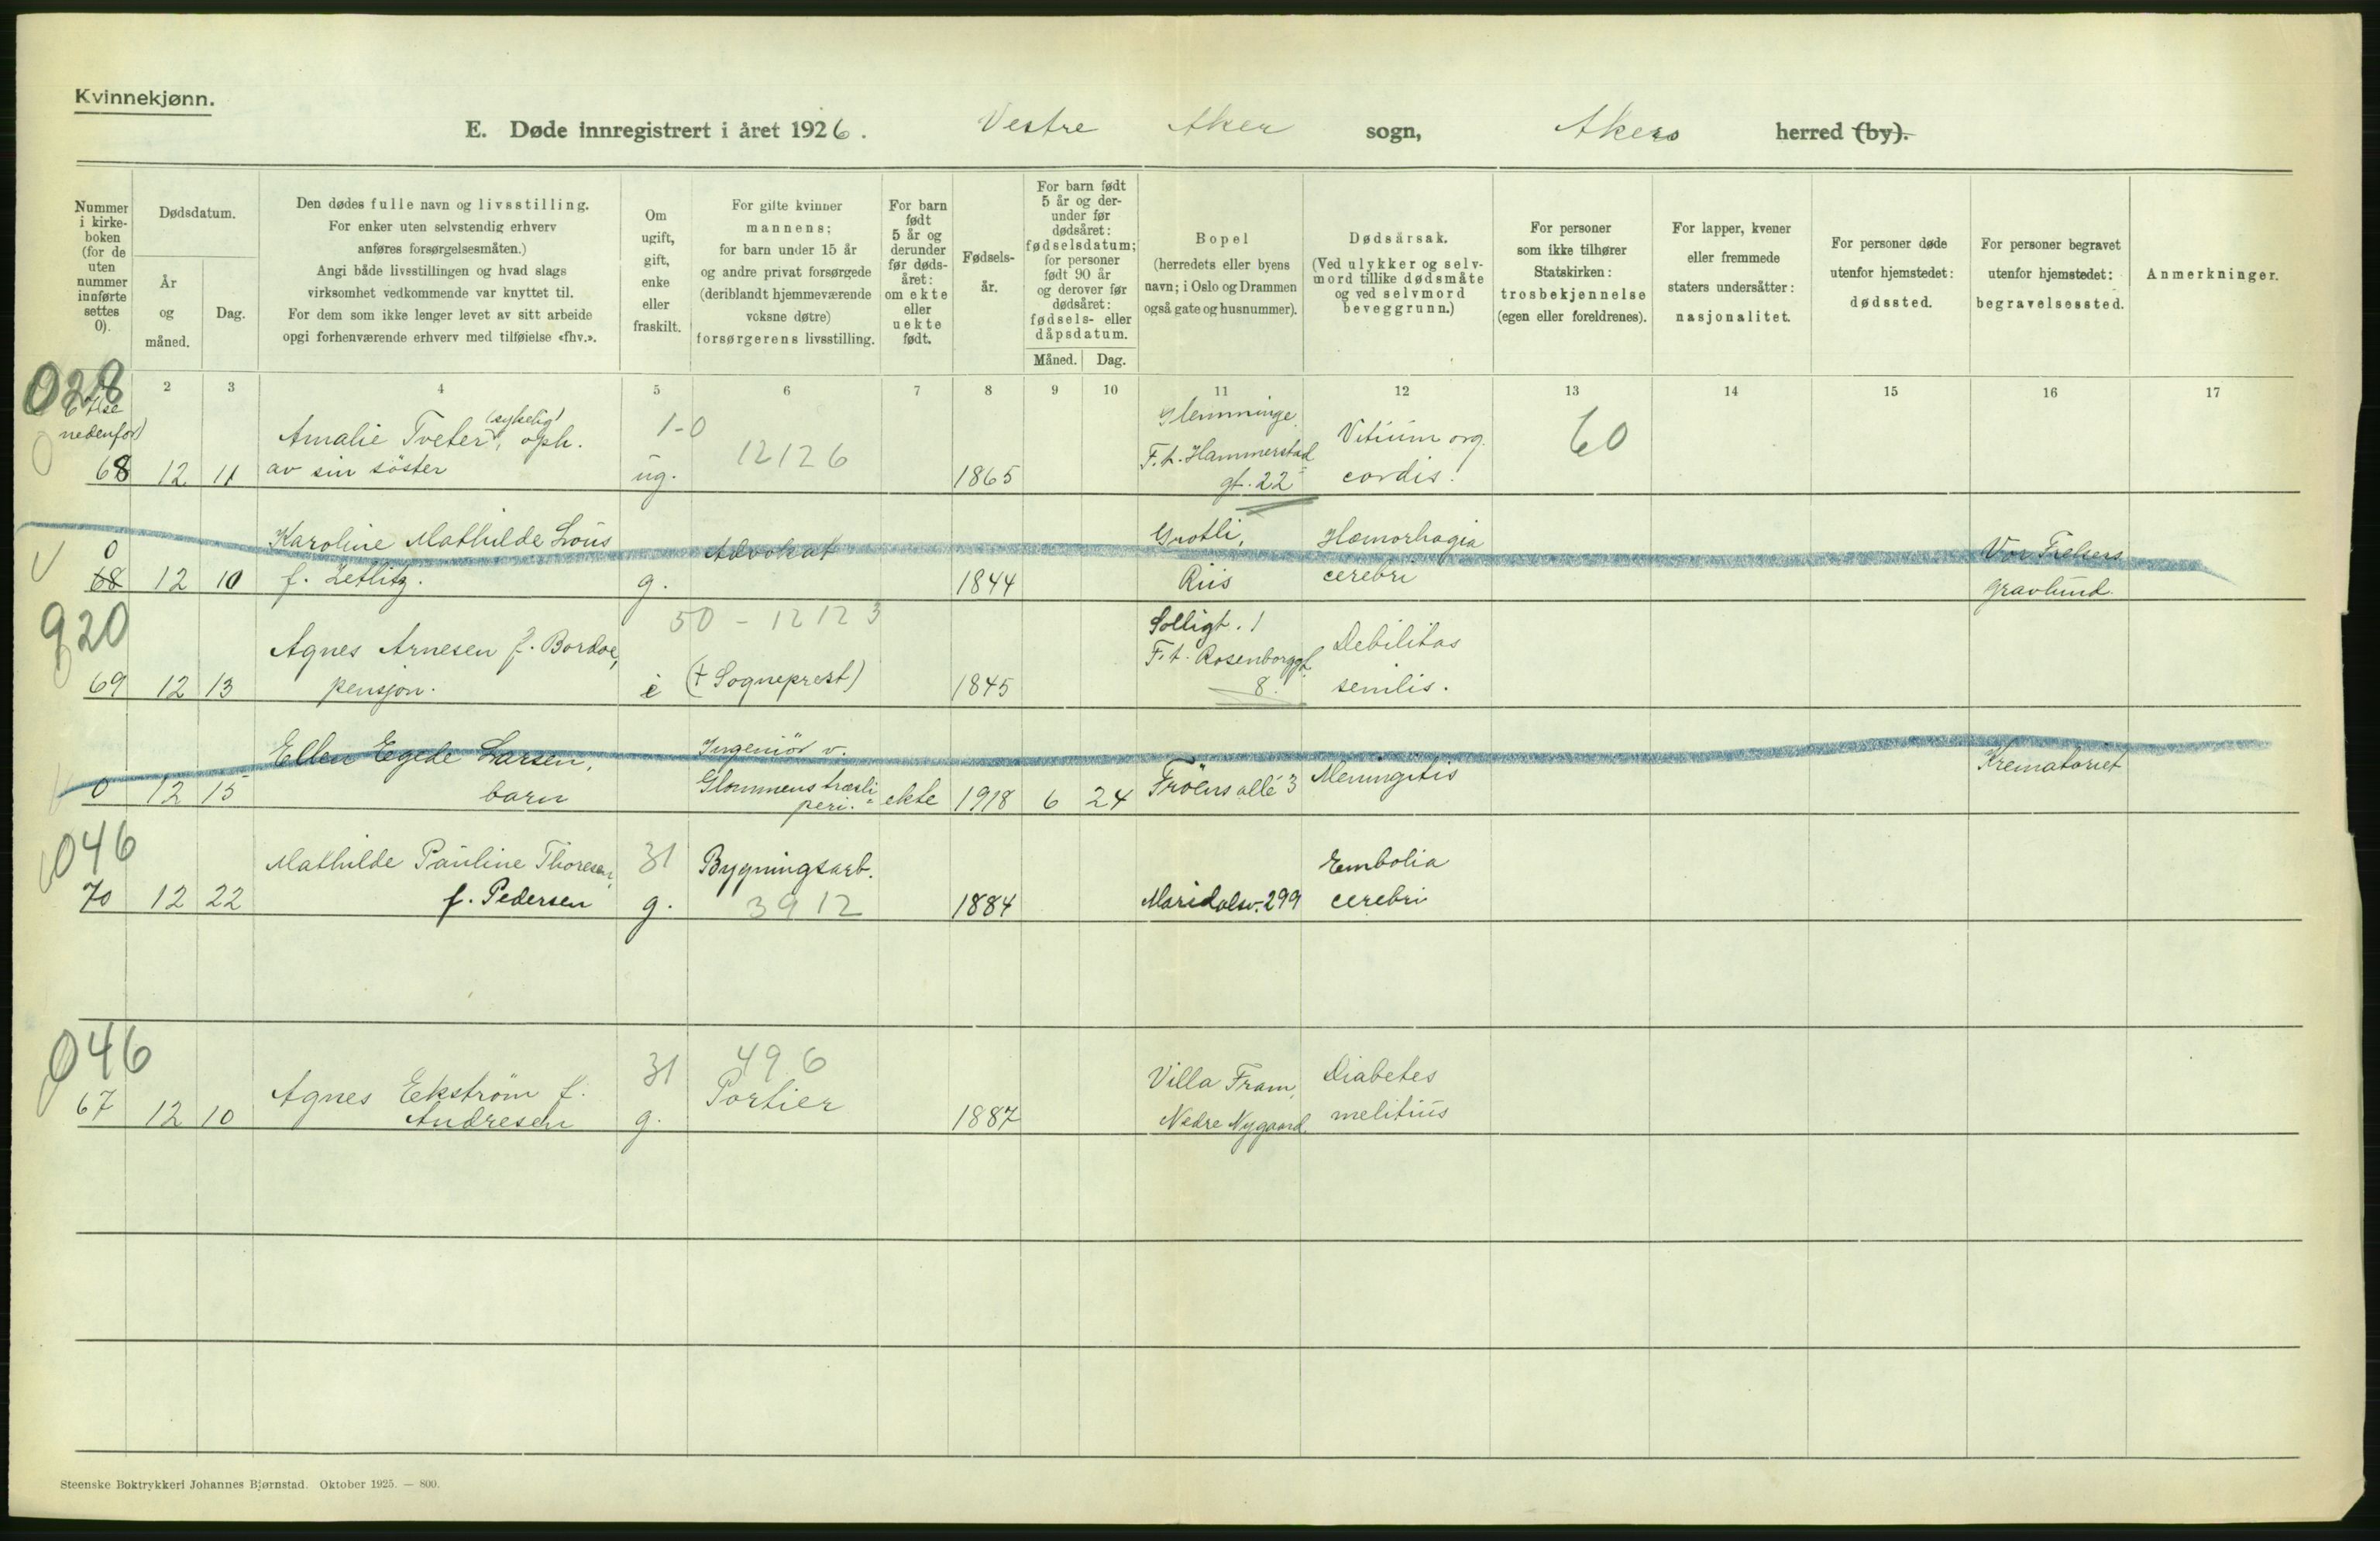 Kvinnekjønn.
E. Døde innregistrert i året 1926. Vestre Aker sogn, Akers herred (by).
Nummer i kirke-boken (for de uten nummer innførte settes 0).
Dødsdatum.
År og måned.
Dag.
Den dødes fulle navn og livsstilling.
For enker uten selvstendig erhverv
anføres forsørgelsesmåten.)
Angi både livsstillingen og hvad slags
virksomhet vedkommende var knyttet til.
For dem som ikke lenger levet av sitt arbeide
opgi forhenværende erhverv med tilføielse «fhv.».
Om ugift, gift, enke eller fraskilt.
For gifte kvinner
mannens;
for barn under 15 år
og andre privat forsørgede
(deriblandt hjemmeværende
voksne døtre)
forsørgerens livsstilling.
For barn født 5 år og derunder før døds-året: om ekte eller uekte født.
Fødsels-år.
For barn født
5 år og der-
under før
dødsåret:
fødselsdatum;
for personer
født 90 år
og derover før
dødsåret:
fødsels- eller
dåpsdatum.
Måned. Dag.
Bopel
(herredets eller byens
navn; i Oslo og Drammen
også gate og husnummer).
Dødsårsak.
(Ved ulykker og selv-
mord tillike dødsmåte
og ved selvmord
beveggrunn.)
For personer
som ikke tilhører
Statskirken:
trosbekjennelse
(egen eller foreldrenes).
For lapper, kvener
eller fremmede
staters undersåtter:
nasjonalitet.
For personer døde
utenfor hjemstedet:
dødssted.
For personer begravet
utenfor hjemstedet:
begravelsessted.
Anmerkninger.
2 3 4 5 6 7 8 9 10 11 12 13 14 15 16 17
028
67 se
nedenfor)
0
68 12 11
Amalie Tveter, (sykelig) oph.
av sin söster
1-0
ug.
12126
1865
Glemminge.
F.t. Hammerstad
gt. 22
Vitium org.
cordis.
60
V 0
68 12 10
Karoline Mathilde Lous
f. Zetlitz.
g.
Advokat
1844
Grotli,
Riis
Hæmorhagia
cerebri
Vor Frelsers
gravlund.
920
69 12 13
Agnes Arnesen f. Bordoe,
pensjon.
50 - 12123
e
(+ Sogneprest)
1845
Solligt. 1
F.t. Rosenborggt.
8.
Debilitas
senilis.
0 12 15
Ellen Egede Larsen,
barn
Ingeniör v.
Glommens træsli
peri.
ekte 1918 6 24
Fröens allé 3
Meningitis
Krematoriet
046
70 12 22
Mathilde Pauline Thoresen,
f. Pedersen
31
g.
Bygningsarb.
3912
1884
Maridalsv. 299
Embolia
cerebri
046
67 12 10
Agnes Ekström f.
Andresen
31
g.
496
Portier
1887
Villa Fram,
Nedre Nygaard.
Diabetes
melitius
Steenske Boktrykkeri Johannes Bjørnstad. Oktober 1925. — 800.